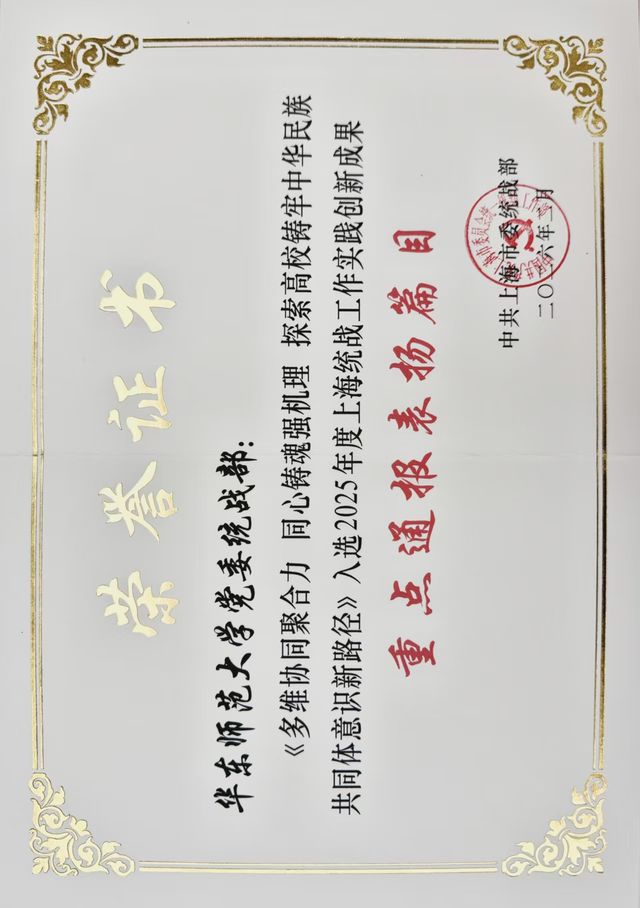 荣誉证书
华东师范大学党委统战部：
《多维协同聚合力 同心铸魂强机理 探索高校铸牢中华民族
共同体意识新路径》入选2025年度上海统战工作实践创新成果
重点通报表扬篇目
中共上海市委统战部
二〇二六年二月